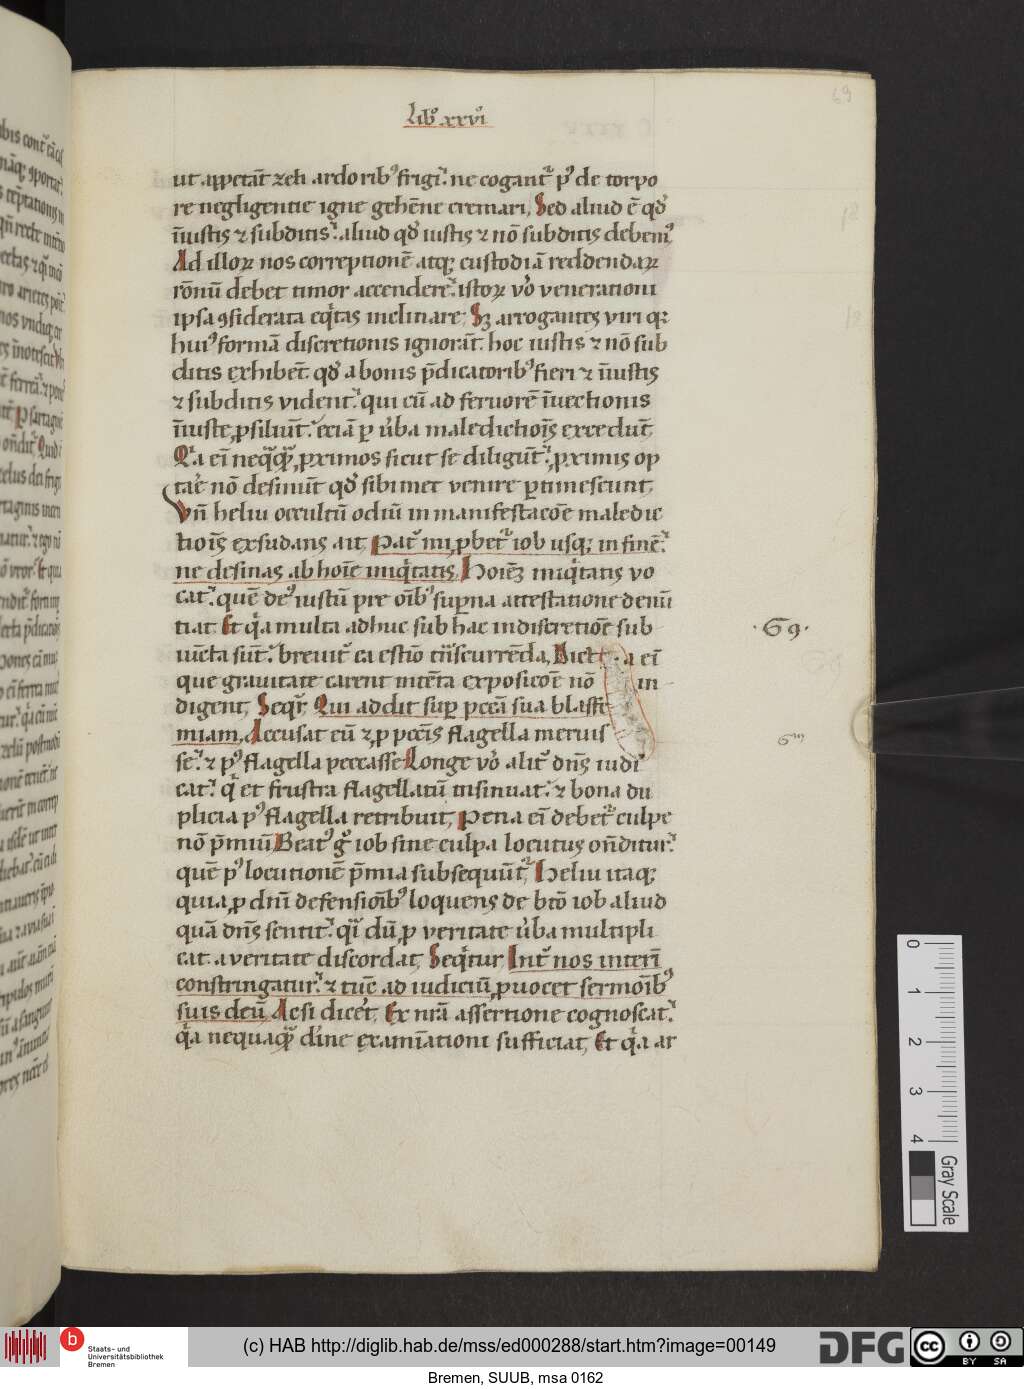 69
Lib᷒ xxvi
ut appetāt zeli ardorib᷒ frigi᷒. ne cogant᷒ p᷒ de torpo
re negligentie igne gehēne cremari, Sed aliud ē qd᷒
īiustis ⁊ subditis᷒. aliud qd᷒ iustis ⁊ nō subditis debem᷒
Ad illoꝝ nos correptionē atqꝫ custodiā reddendaꝝ
rōnū debet timor accendere᷒. istoꝝ vo᷒ venerationi
ipsa ꝯsiderata eq͛tas inclinare; Sꝫ arrogantes viri qꝛ
hui᷒ formā discretionis ignorāt. hoc iustis ⁊ nō sub
ditis exhibēt. qd᷒ a bonis p̄dicatorib᷒ fieri ⁊ īiustis
⁊ subditis vident᷒. qui cū ad feruorē īuectionis
īiuste ꝓsiliūt᷒. eciā ꝑ u᷒ba maledictiōis excedūt,
Q͛a eī neq͛q͛ ꝓximos sicut se diligūt᷒. ꝓximis op
tare᷒ nō desinūt qd᷒ sibimet venire ꝑtimescunt,
Vn̄ heliu occultū odiū in manifestacōe maledic
tiōis exsudans ait, Pat᷒ mi ꝓbet᷒ iob usqꝫ in finē᷒.
ne desinas ab hoīe iniq͛tatis, Hoīeꝫ iniq͛tatis vo
cat᷒. quē de᷒ iustū pre oīb᷒ superna attestatione denū
tiat Et q͛a multa adhuc sub hac indiscretiōe sub
iūcta sūt᷒. breuit᷒ ea estīo trāscurrēda, Dict a eī
que grauitate carent intēta exposicōe nō in
digent, Seqr᷒ Qui addit suꝑ pccā sua blasfe
miam, Accusat eū ⁊ ꝓ pccīs flagella meruis
se᷒. ⁊ p᷒ flagella peccasse Longe vo᷒ alit᷒ dn̄s iudi
cat᷒. q͛ et frustra flagellatū insinuat᷒. ⁊ bona du
plicia p᷒ flagella retribuit, Pena eī debet᷒ culpe
nō p̄miū Beat᷒ g᷒ iob sine culpa locutus on̄ditur᷒.
quē p᷒ locutionē p̄mia subsequūt᷒, Heliu itaqꝫ
quia ꝓ dn̄i defensiōib᷒ loquens de btō iob aliud
quā dn̄s sentit᷒. q͛ dū ꝓ veritate u᷒ba multipli
cat. a veritate discordat, Seq͛tur Int᷒ nos interī
constringatur᷒. ⁊ tūc ad iudiciū ꝓuocet sermōib᷒
suis deū, Acsi dicet᷒, Ex nrā assertione cognoscat᷒.
q͛a nequaq͛ d͛ine examīationi sufficiat, Et q͛a ar
·G9·
Gm
0
1
2
3
4
Gray Scale
b
Staats- und
Universitätsbibliothek
Bremen
(c) HAB http://diglib.hab.de/mss/ed000288/start.htm?image=00149
DFG
cc
BY SA
Bremen, SUUB, msa 0162